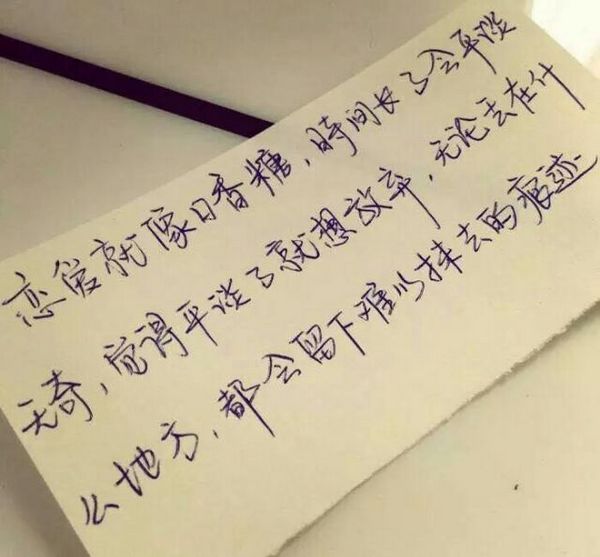 恋爱就像口香糖，時间长了会平淡
无奇，觉得平淡了就想放弃，无论丢在什
么地方，都会留下难以抹去的痕迹